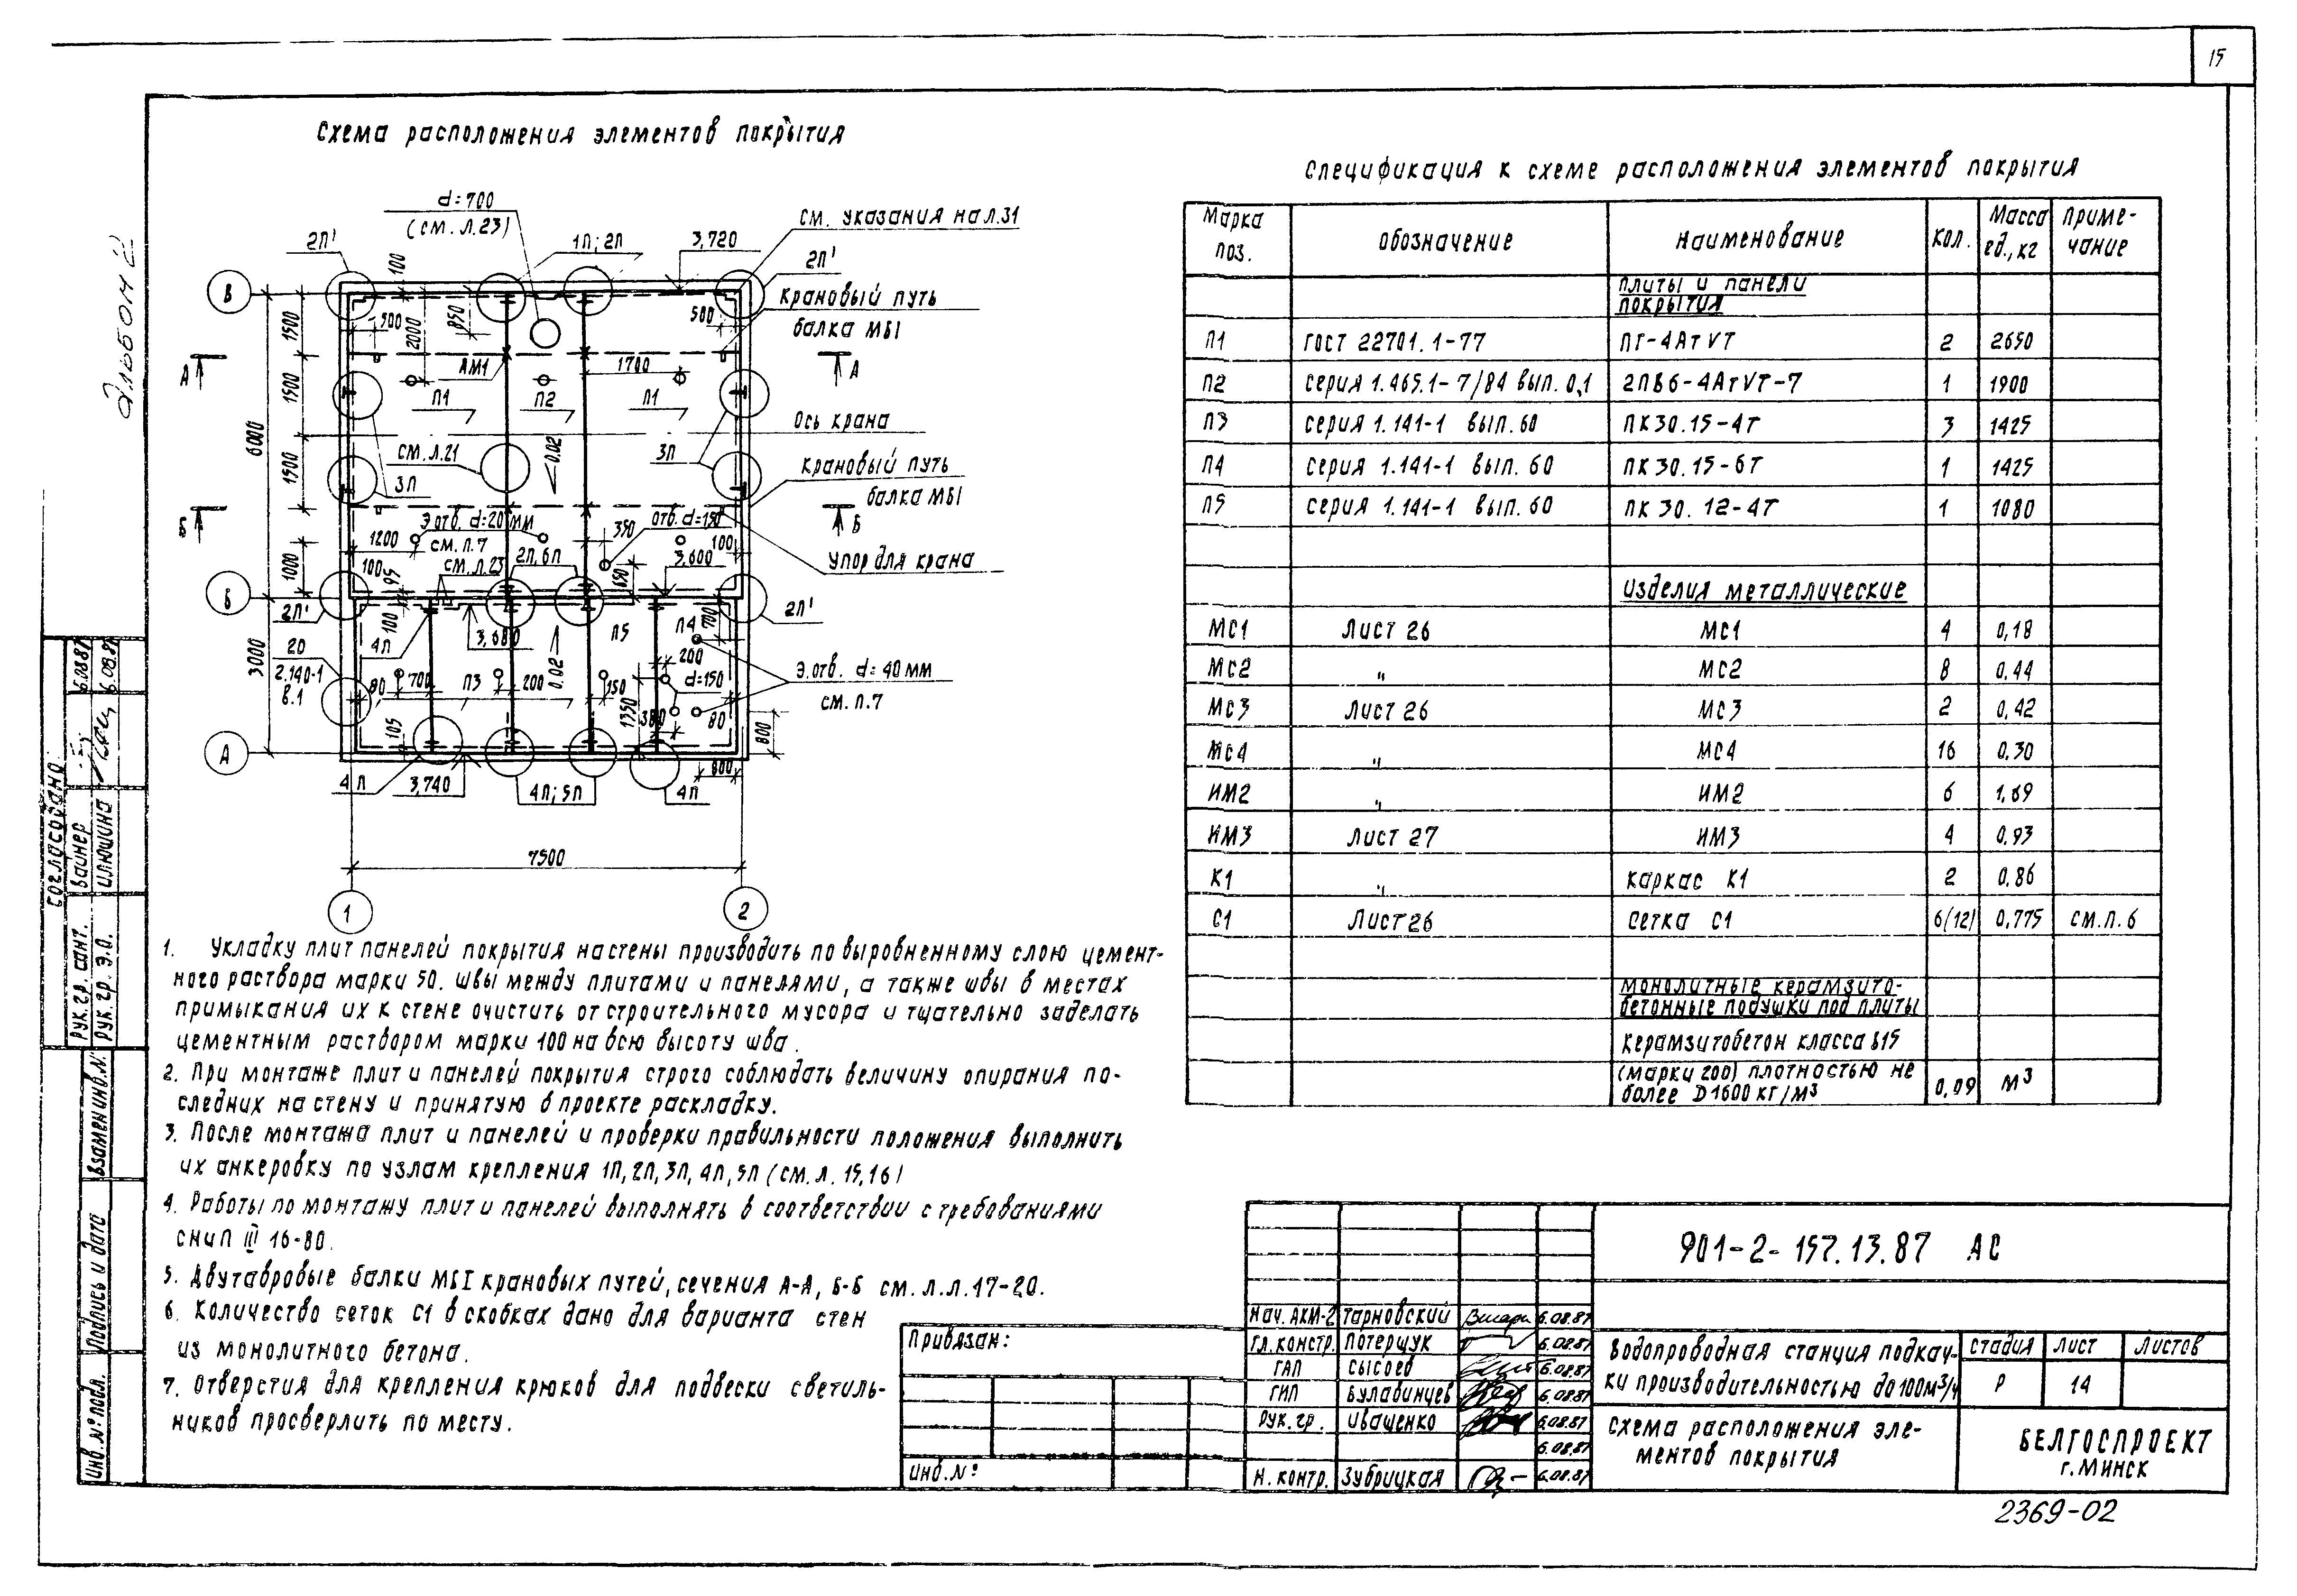 15
Альбом 2
Схема расположения элементов покрытия
d=700
(см. л.23)
см. указания на л.31
2п'
1п; 2п
3,720
2п'
Крановый путь
балка МБ1
В
100
500
2000
850
500
1500
АМ1
1700
А
А
П1
П2
П1
1500
6000
Ось крана
см.л.21
0.02
3п
крановый путь
балка МБ1
3п
1500
Э.отв. d=20мм
отв. d=150
Б
Б
1200
см. п.7
350
100
3,600
упор для крана
1000
100
95
см.л.23
2п, 6п
650
Б
2п'
2п'
100
4п
3,680
П5
П4
700
20
2.140-1
в.1
3000
80
700
П3
200
0.02
150
1350
200
d=150
380
80
Э.отв. d=40мм
см. п.7
105
800
А
4п
3,740
4п; 5п
4п
800
7500
1
2
Спецификация к схеме расположения элементов покрытия
Марка поз. обозначение наименование кол. Масса ед., кг приме-чание
плиты и панели
покрытия
П1 ГОСТ 22701.1-77 ПГ-4АтVТ 2 2650
П2 серия 1.465.1-7/84 вып. 0,1 2ПВ6-4АтVТ-7 1 1900
П3 серия 1.141-1 вып. 60 ПК30.15-4т 3 1425
П4 серия 1.141-1 вып. 60 ПК30.15-6т 1 1425
П5 серия 1.141-1 вып. 60 ПК 30.12-4т 1 1080
изделия металлические
МС1 Лист 26 МС1 4 0,18
МС2 " МС2 8 0,44
МС3 Лист 26 МС3 2 0,42
МС4 " МС4 16 0,30
ИМ2 " ИМ2 6 1,69
ИМ3 Лист 27 ИМ3 4 0,93
К1 " каркас К1 2 0,86
С1 Лист 26 сетка С1 6(12) 0,775 см.п.6
монолитные керамзито-
бетонные подушки под плиты
керамзитобетон класса В15
(марки 200) плотностью не
более D1600 кг/м3 0,09 м3
1. Укладку плит панелей покрытия на стены производить по выровненному слою цемент-
ного раствора марки 50. швы между плитами и панелями, а также швы в местах
примыкания их к стене очистить от строительного мусора и тщательно заделать
цементным раствором марки 100 на всю высоту шва.
2. При монтаже плит и панелей покрытия строго соблюдать величину опирания по-
следних на стену и принятую в проекте раскладку.
3. После монтажа плит и панелей и проверки правильности положения выполнить
их анкеровку по узлам крепления 1п, 2п, 3п, 4п, 5п (см. л. 15,16)
4. Работы по монтажу плит и панелей выполнять в соответствии с требованиями
СНиП III 16-80.
5. Двутавровые балки МБ1 крановых путей, сечения А-А, Б-Б см. л.л. 17-20.
6. Количество сеток С1 в скобках дано для варианта стен
из монолитного бетона.
7. Отверстия для крепления крюков для подвески светиль-
ников просверлить по месту.
Привязан:
инв.№
901-2-157.13.87 АС
нач. АКМ-2 Тарновский 6.08.87
гл.констр. Потерщук 6.08.87
ГАП Сысоев 6.08.87
ГИП Булавинцев 6.08.87
рук.гр. Иващенко 6.08.87
6.08.87
Н. контр. Зубрицкая 6.08.87
Водопроводная станция подкач-
ки производительностью до 100м3/ч
стадия лист листов
Р 14
Схема расположения эле-
ментов покрытия
БЕЛГОСПРОЕКТ
г. Минск
2369-02
согласовано:
рук. гр. сант. Вайнер 6.08.87
рук. гр. Э.О. Илюшина 6.08.87
Взамен инв.№
Подпись и дата
инв.№ подл.